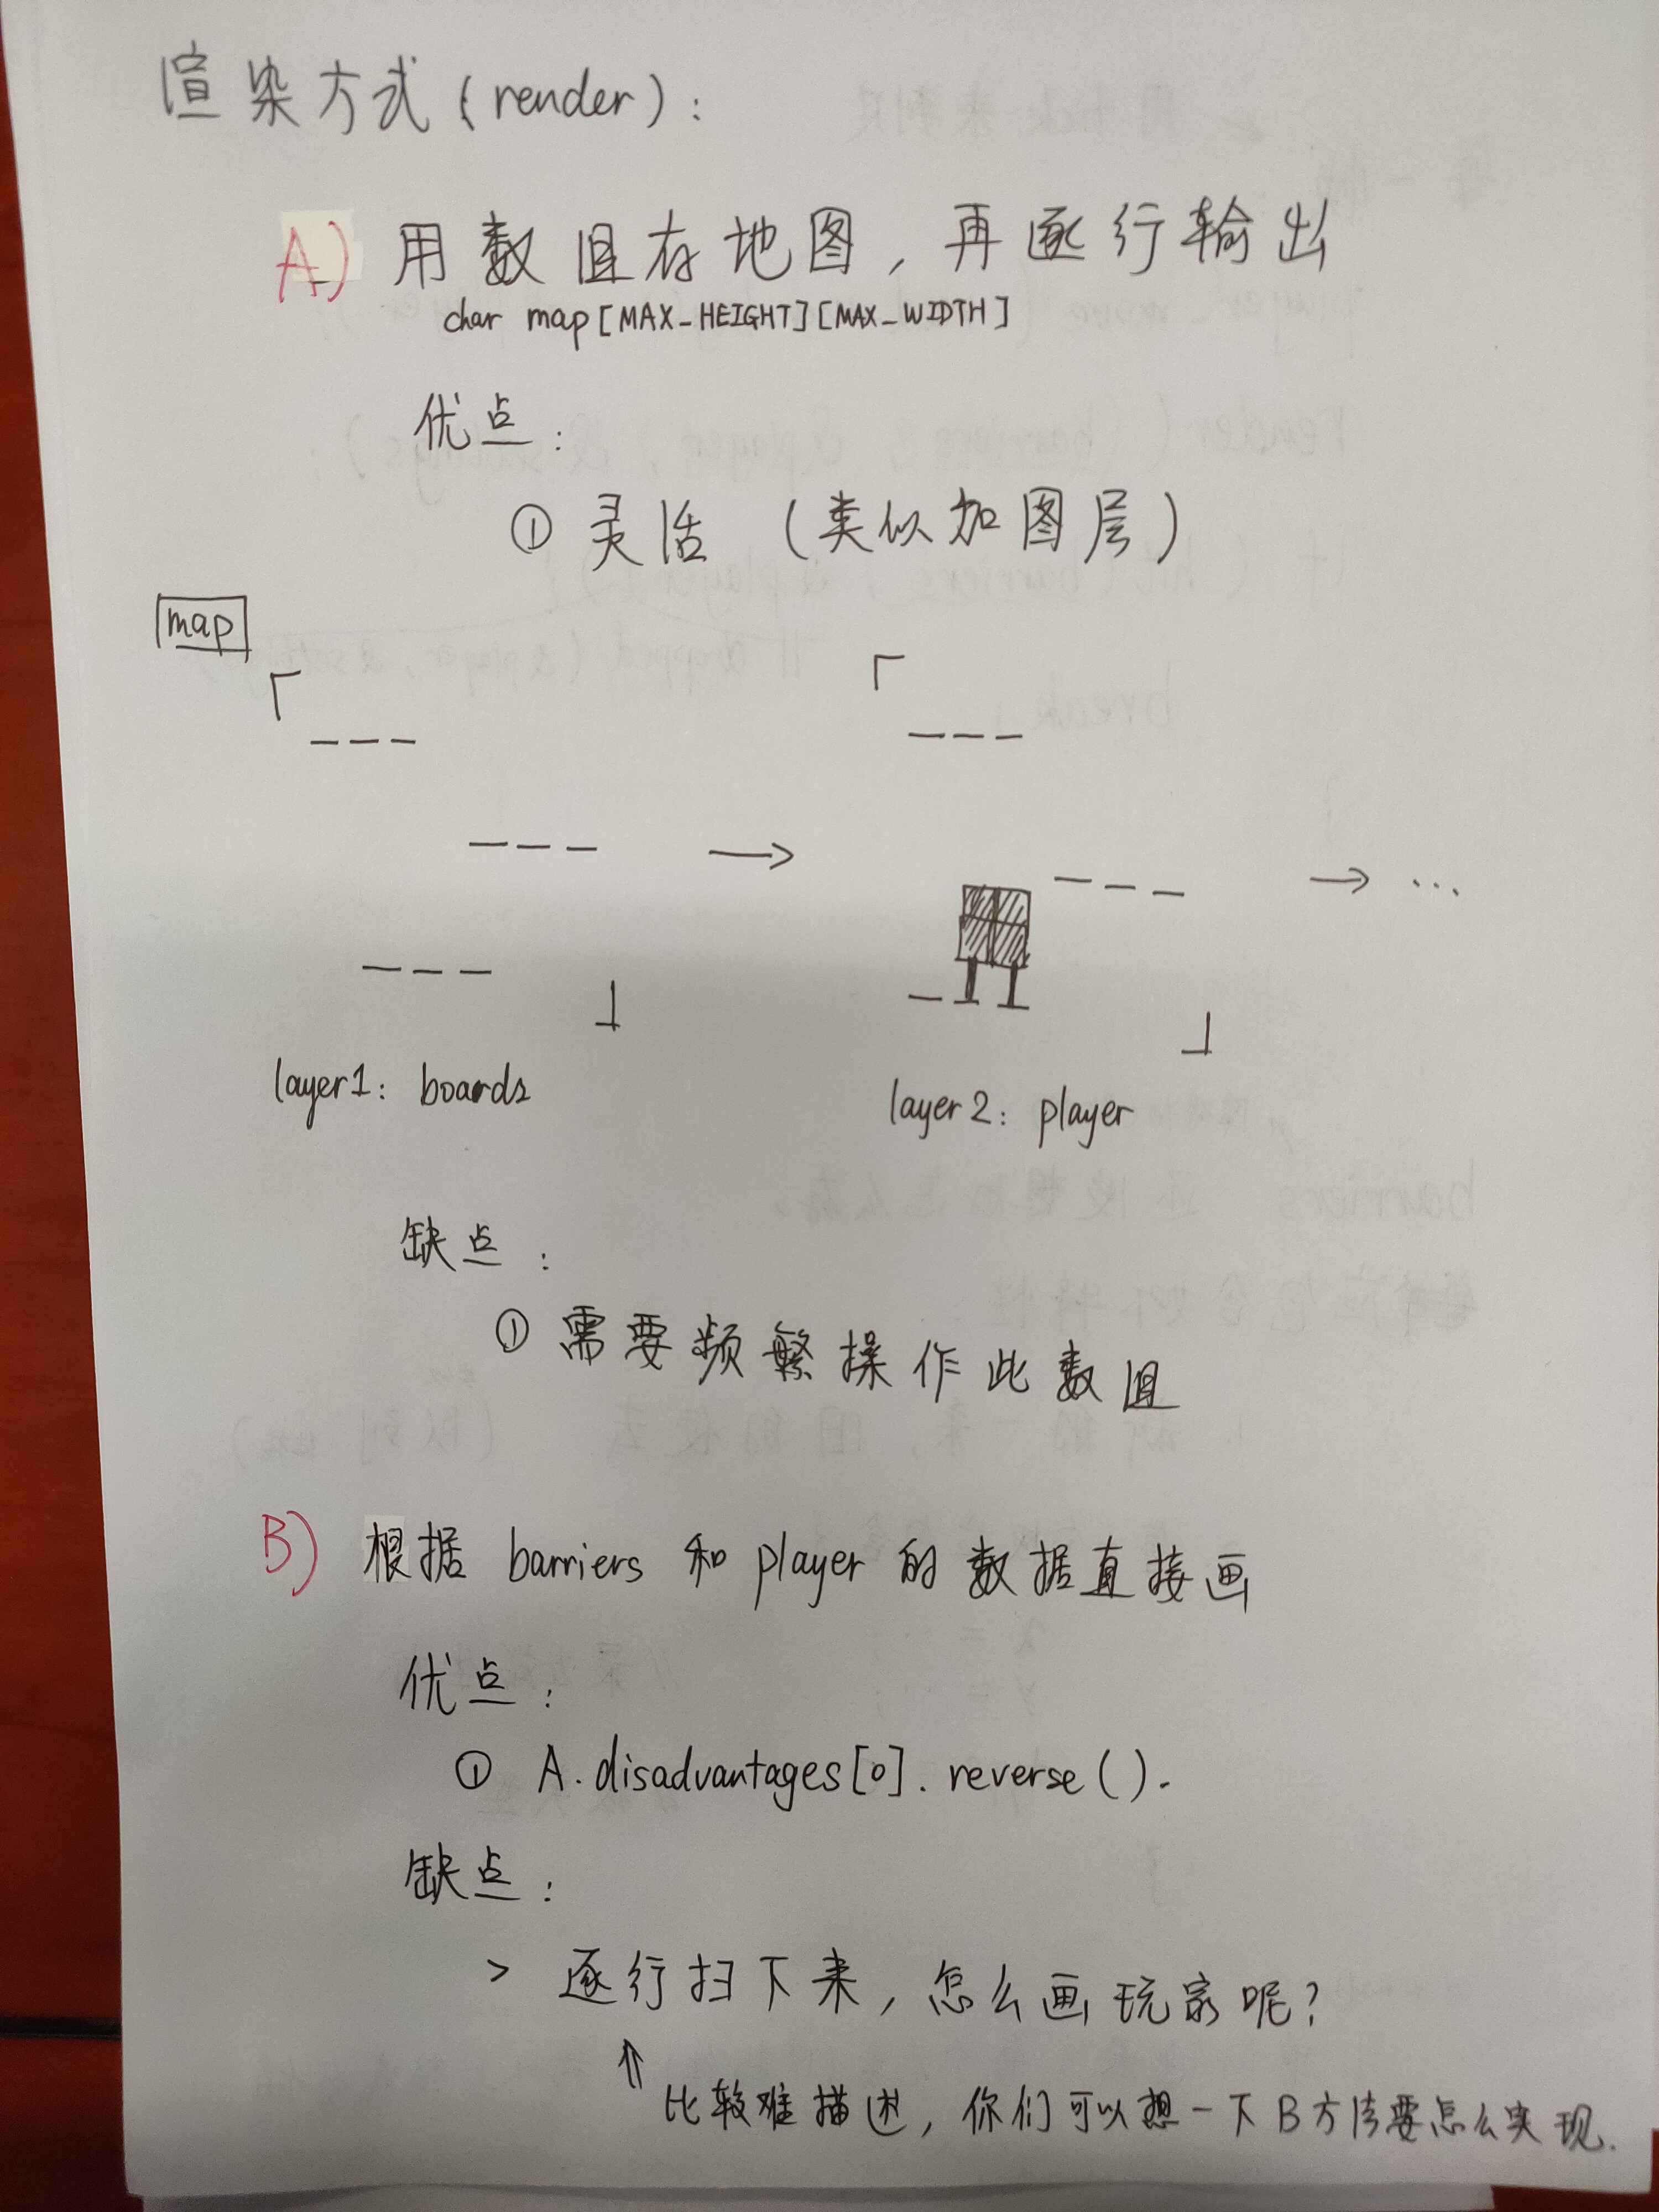 渲染方式 (render):
A) 用数组存地图, 再逐行输出
char map[MAX_HEIGHT][MAX_WIDTH]
优点:
① 灵活 (类似加图层)
map
layer1: boards
layer2: player
缺点:
① 需要频繁操作此数组
B) 根据 barriers 和 player 的数据直接画
优点:
① A.disadvantages[0].reverse().
缺点:
> 逐行扫下来, 怎么画玩家呢?
比较难描述, 你们可以想一下B方法要怎么实现.